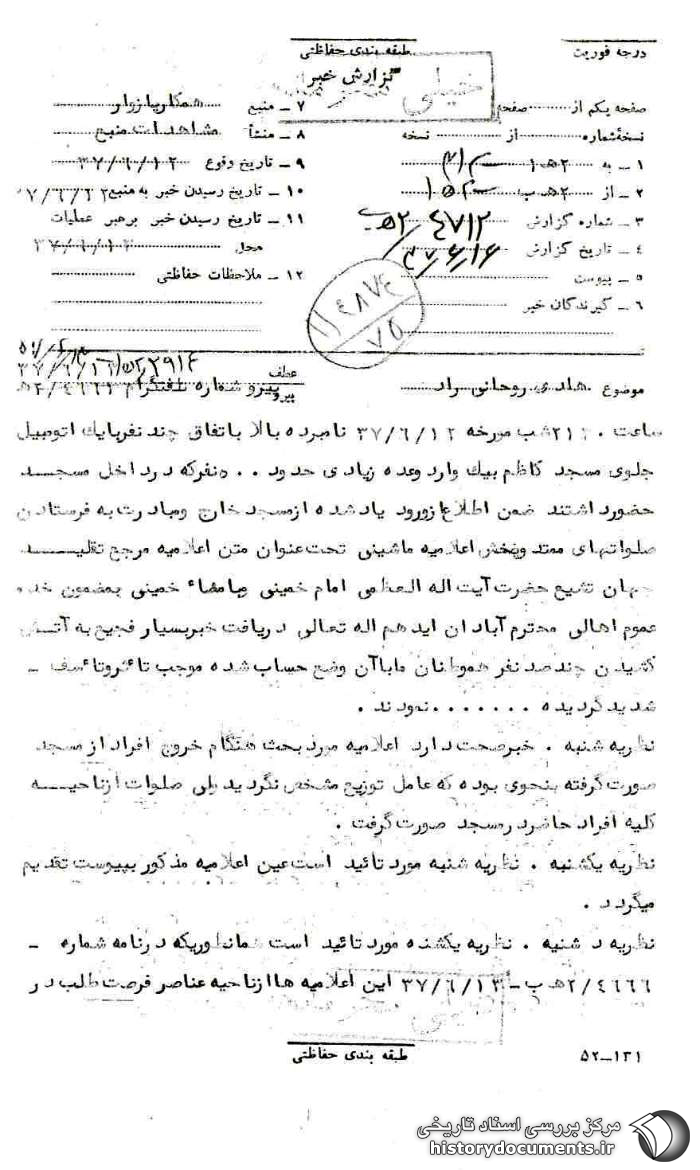 درجه فوریت
طبقه بندی حفاظتی
گزارش خبر
خیلی
صفحه یکم از صفحه
نسخهٔ شماره از نسخه
۱ ـ به ۲هـ۱
۲ ـ از ۲هـ ب
۳ ـ شماره گزارش ۴۷۱۲/۲هـ
۴ ـ تاریخ گزارش ۳۷/۶/۱۶
۵ ـ پیوست
۶ ـ گیرندگان خبر
۷ ـ منبع همکاربازیار
۸ ـ منشأ مشاهدات منبع
۹ ـ تاریخ وقوع ۳۷/۶/۱۲
۱۰ ـ تاریخ رسیدن خبر به منبع
۱۱ ـ تاریخ رسیدن خبر برهبر عملیات
محل
۱۲ ـ ملاحظات حفاظتی
۷۵
موضوع هادی روحانی راد
عطف
پیرو
پیرو شماره تلفنگرام
ساعت ۲۱۳۰شب مورخه ۳۷/۶/۱۲ نامبرده بالا باتفاق چند نفربایك اتومبیل
جلوی مسجد کاظم بیك وارد وعده زیادی حدود ۵۰۰نفرکه درداخل مسجـــد
حضورداشتند ضمن اطلاع ازورود یادشده ازمسجد خارج ومبادرت به فرستادن
صلواتهای ممتد وپخش اعلامیه ماشینی تحت عنوان متن اعلامیه مرجع تقلیـــد
جهان تشیع حضرت آیت اله العظمی امام خمینی وبامضاء خمینی بمضمون خدمت
عموم اهالی محترم آبادان ایدهم اله تعالی دریافت خبربسیار فجیع به آتـــش
کشیدن چندصد نفر هموطنان ماباآن وضع حساب شده موجب تاثروتاسف ـ
شدیدگردیده ....... نمودند .
نظریه شنبه . خبرصحت دارد اعلامیه موردبحث هنگام خروج افراد از مسجد
صورت گرفته بنحوی بوده که عامل توزیع مشخص نگردیدولی صلوات ازناحیـــه
کلیه افراد حاضردرمسجد صورت گرفت .
نظریه یکشنبه . نظریه شنبه مورد تائید است عین اعلامیه مذکور بپیوست تقدیم
میگردد .
نظریه دشنبه . نظریه یکشنبه مورد تائید است همانطوریکه درنامه شماره ـ
۴۶۶۶/۲هـ ب ـ ۳۷/۶/۱۳ این اعلامیه ها ازناحیه عناصر فرصت طلب در
طبقه بندی حفاظتی
۱۳۱ـ۵۲
مرکز بررسی اسناد تاریخی
historydocuments.ir